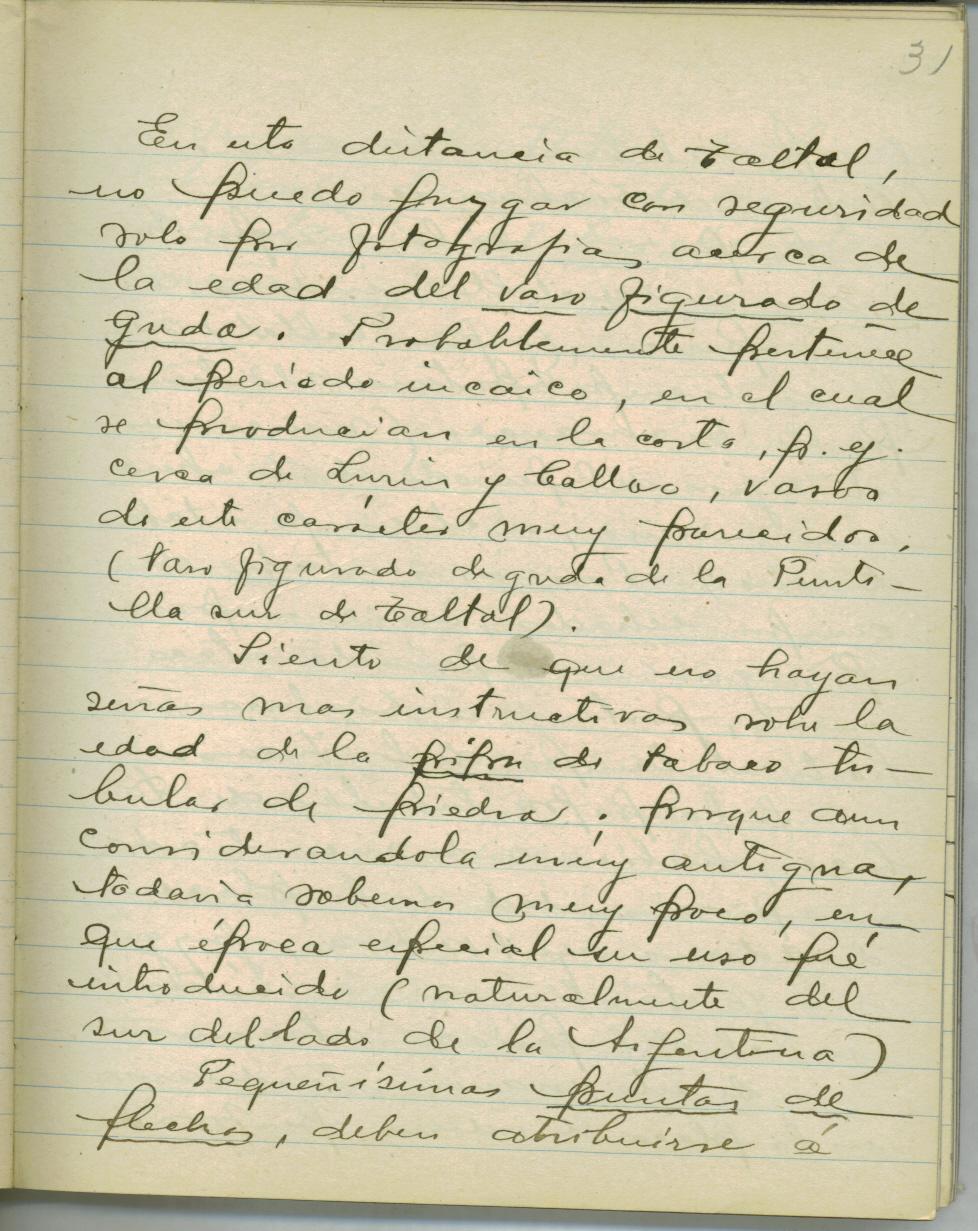 31
En esta distancia de Taltal,
no puedo juzgar con seguridad
solo por fotografias acerca de
la edad del vaso figurado de
greda. Probablemente pertenece
al período incaico, en el cual
se producian en la costa, p. ej.
cerca de Lurin y Callao, vasos
de este carácter muy parecidos.
(Vaso figurado de greda de la Punti-
lla sur de Taltal).
Siento de que no hayan
señas mas instructivas sobre la
edad de la pipa de tabaco tu-
bular de piedra; porque aun
considerandola muy antigua,
todavia sabemos muy poco, en
que época especial su uso fué
introducido (naturalmente del
sur del lado de la Argentina)
Pequeñísimas puntas de
flechas, deben atribuirse á